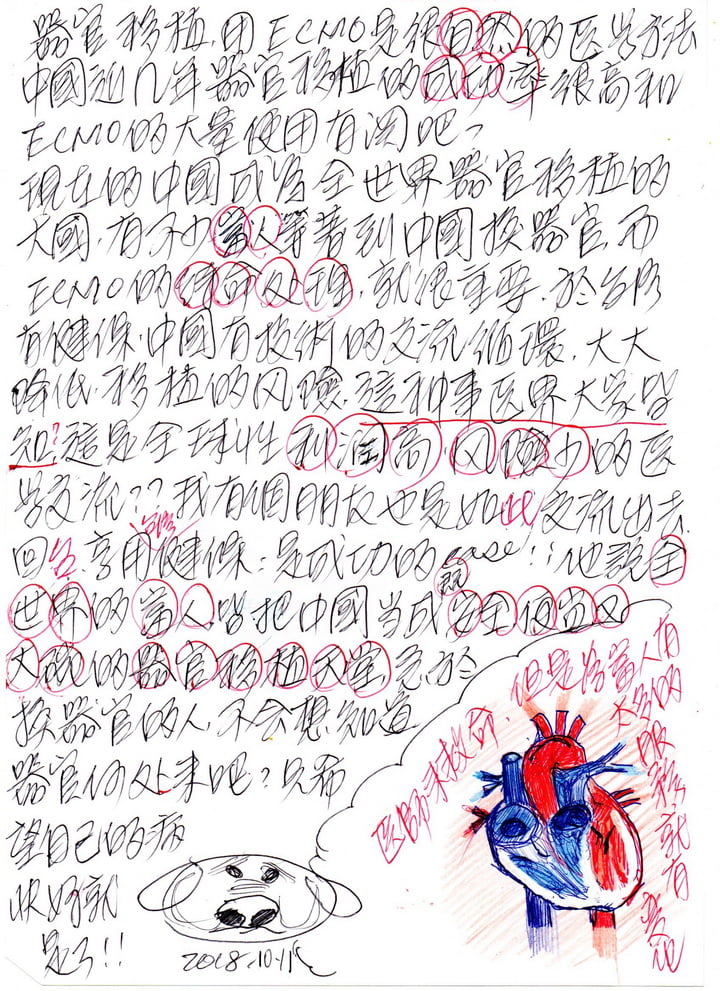 器官移植,用ECMO是很自然的医学方法
中國近几年器官移植的成功率很高和
ECMO的大量使用有関吧?
現在的中國成為全世界器官移植的
大國,有不少富人等著到中國換器官,而
ECMO的術前处理,就很重要,於台灣
有健保,中國有技術的交流循環,大大
降低移植的风險,這种事医界大家皆
知?這是全球性利潤高,风險少的医
学交流??我有個朋友也是如此交流出去
回台享用台灣健保:是成功的case!!他說全
世界的富人皆把中國當成最安全便宜又
大咸的器官移植天堂,急於
換器官的人,不会想知道
器官何处來吧?只希
望自己的病
快好就
是了!!
2018.10.11
医師來救命,但是為富人有
太多的
服務就有
爭